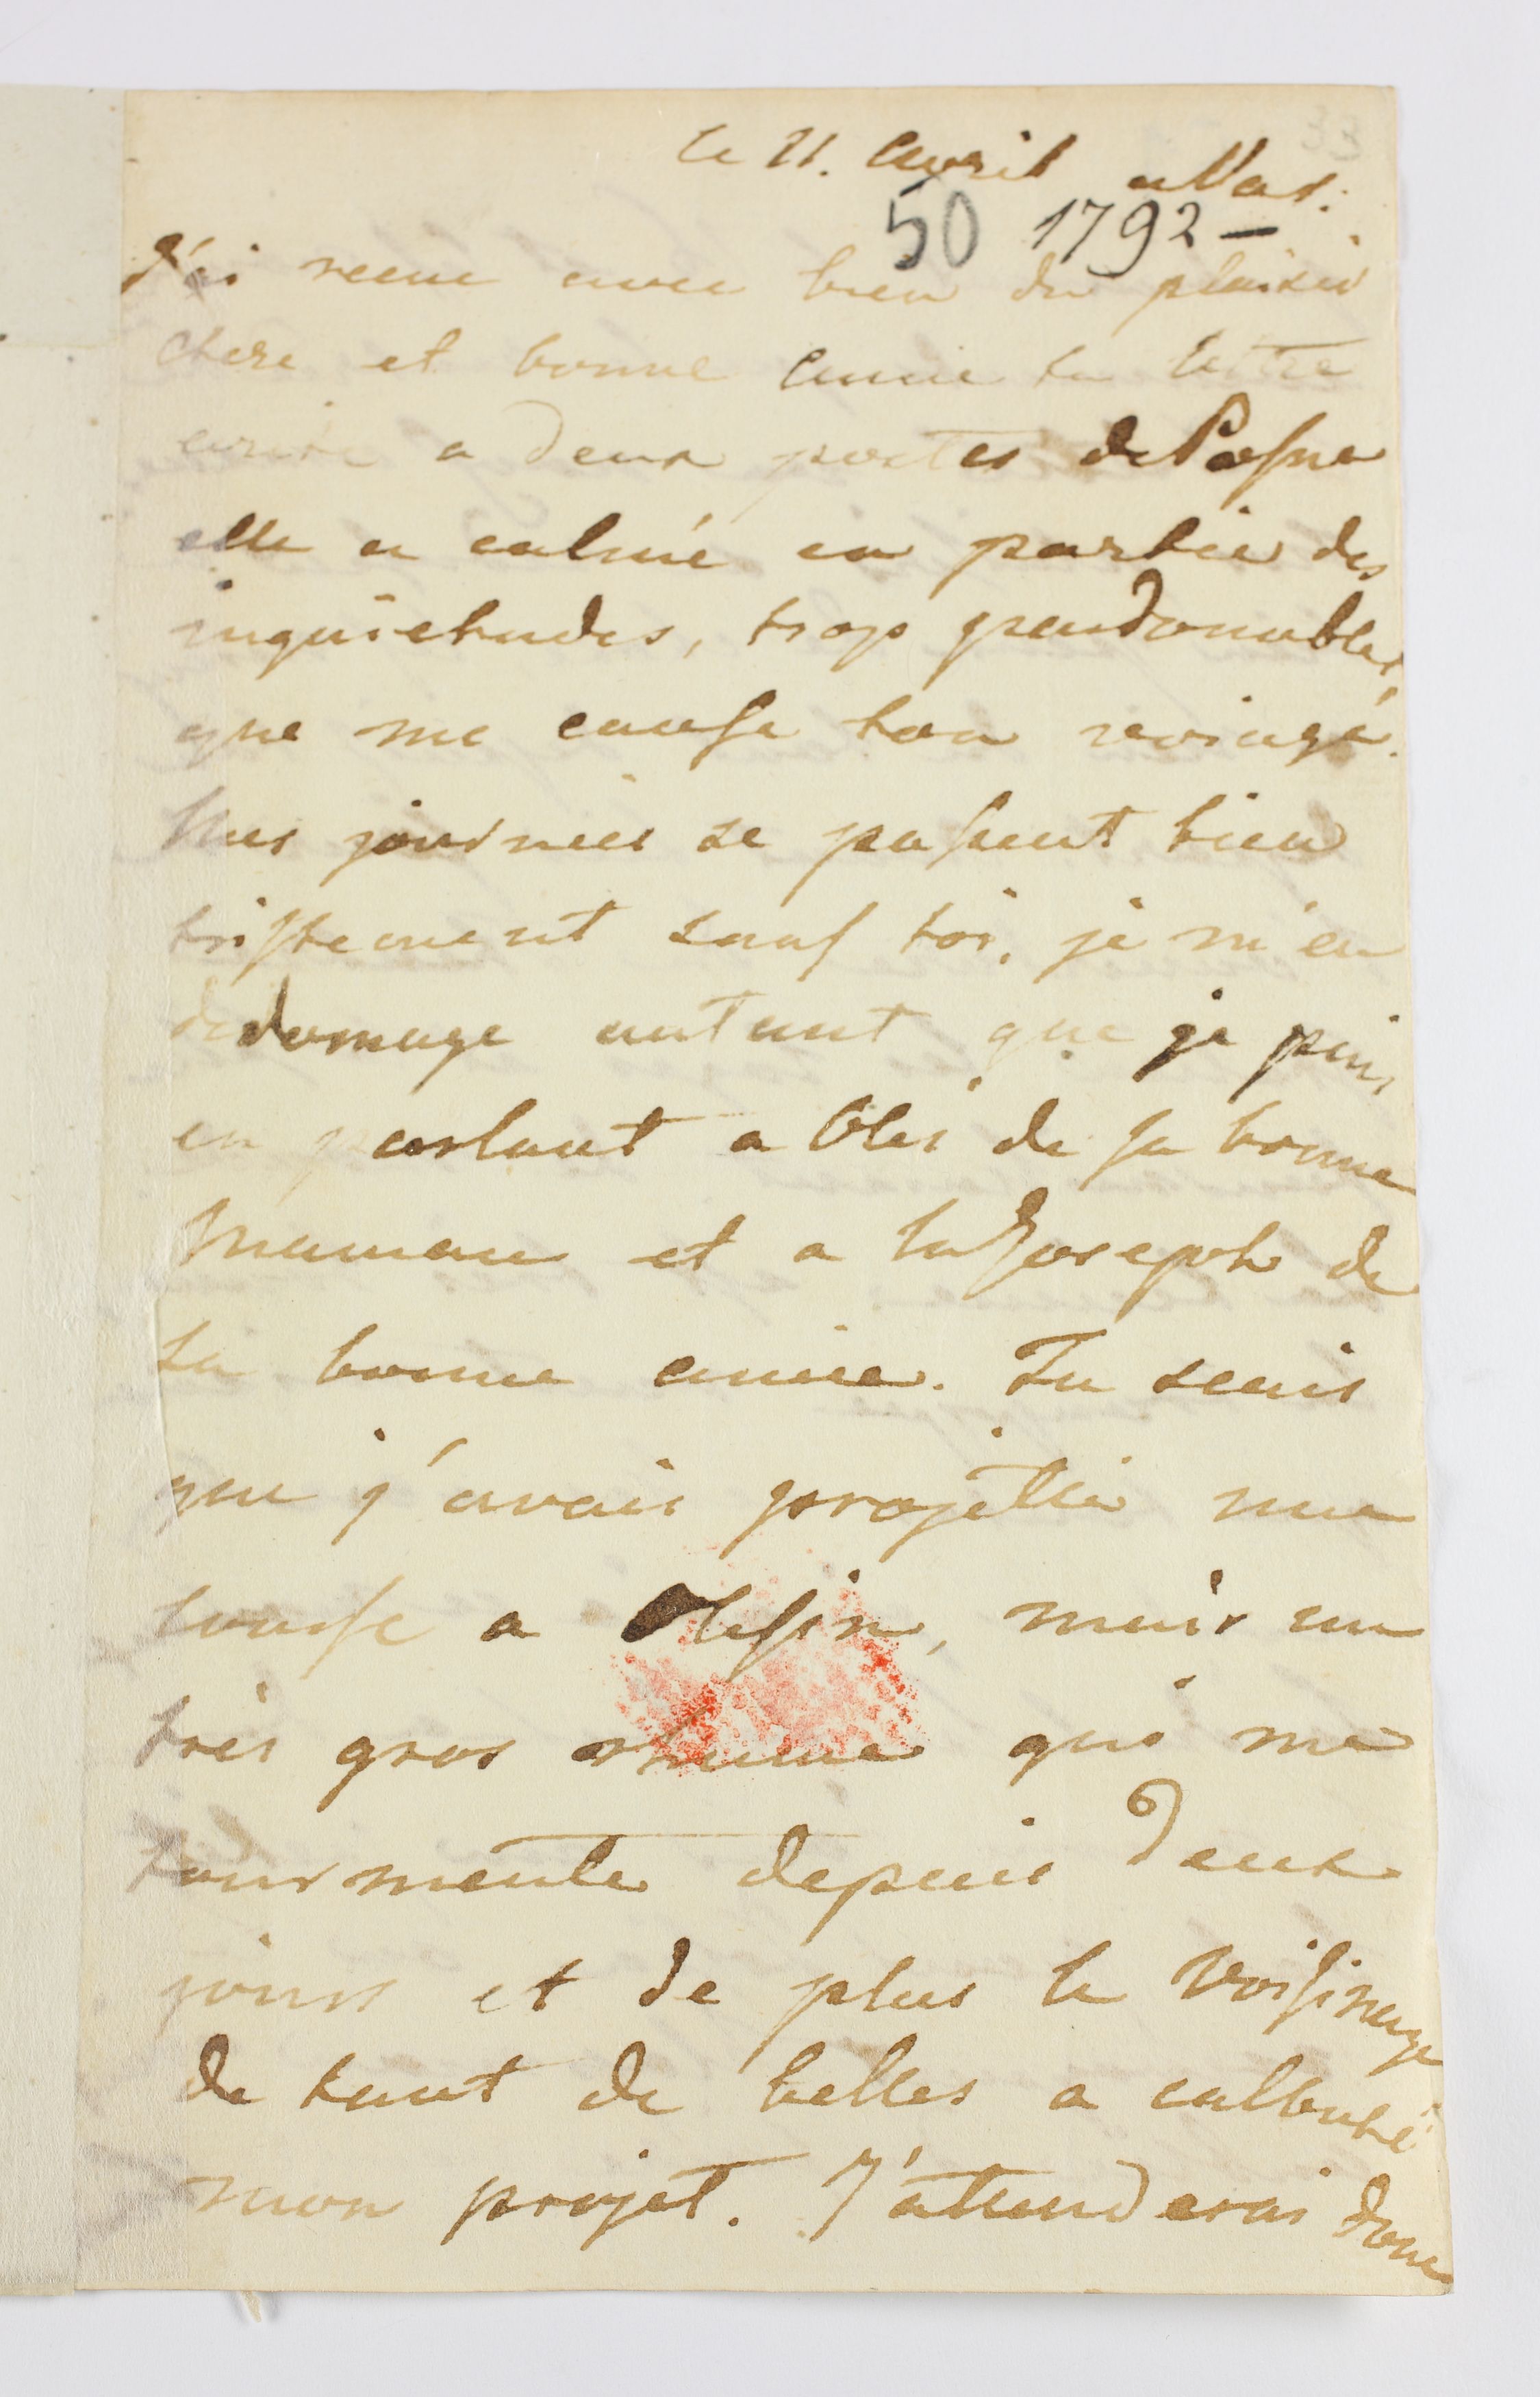 le 21. Avril a Var:
50 1792 —
J'ai recue avec bien du plaisir
chere et bonne amie ta lettre
ecrite a deux postes de Posna
elle a calmé en partie des
inquietudes, trop pardonables,
que me cause ton voiage.
Mes journées se passent bien
tristement sans toi, je m'en
dedomage autant que je puis
en parlant a Oles de sa bonne
Maman et a la Joseph de
sa bonne amie. Tu scais
que j'avais projetté une
course a Olesin, mais un
très gros rhume qui me
tourmente depuis deux
jours et de plus le voisinage
de tant de belles a culbuté
mon projet. J'attenderai donc